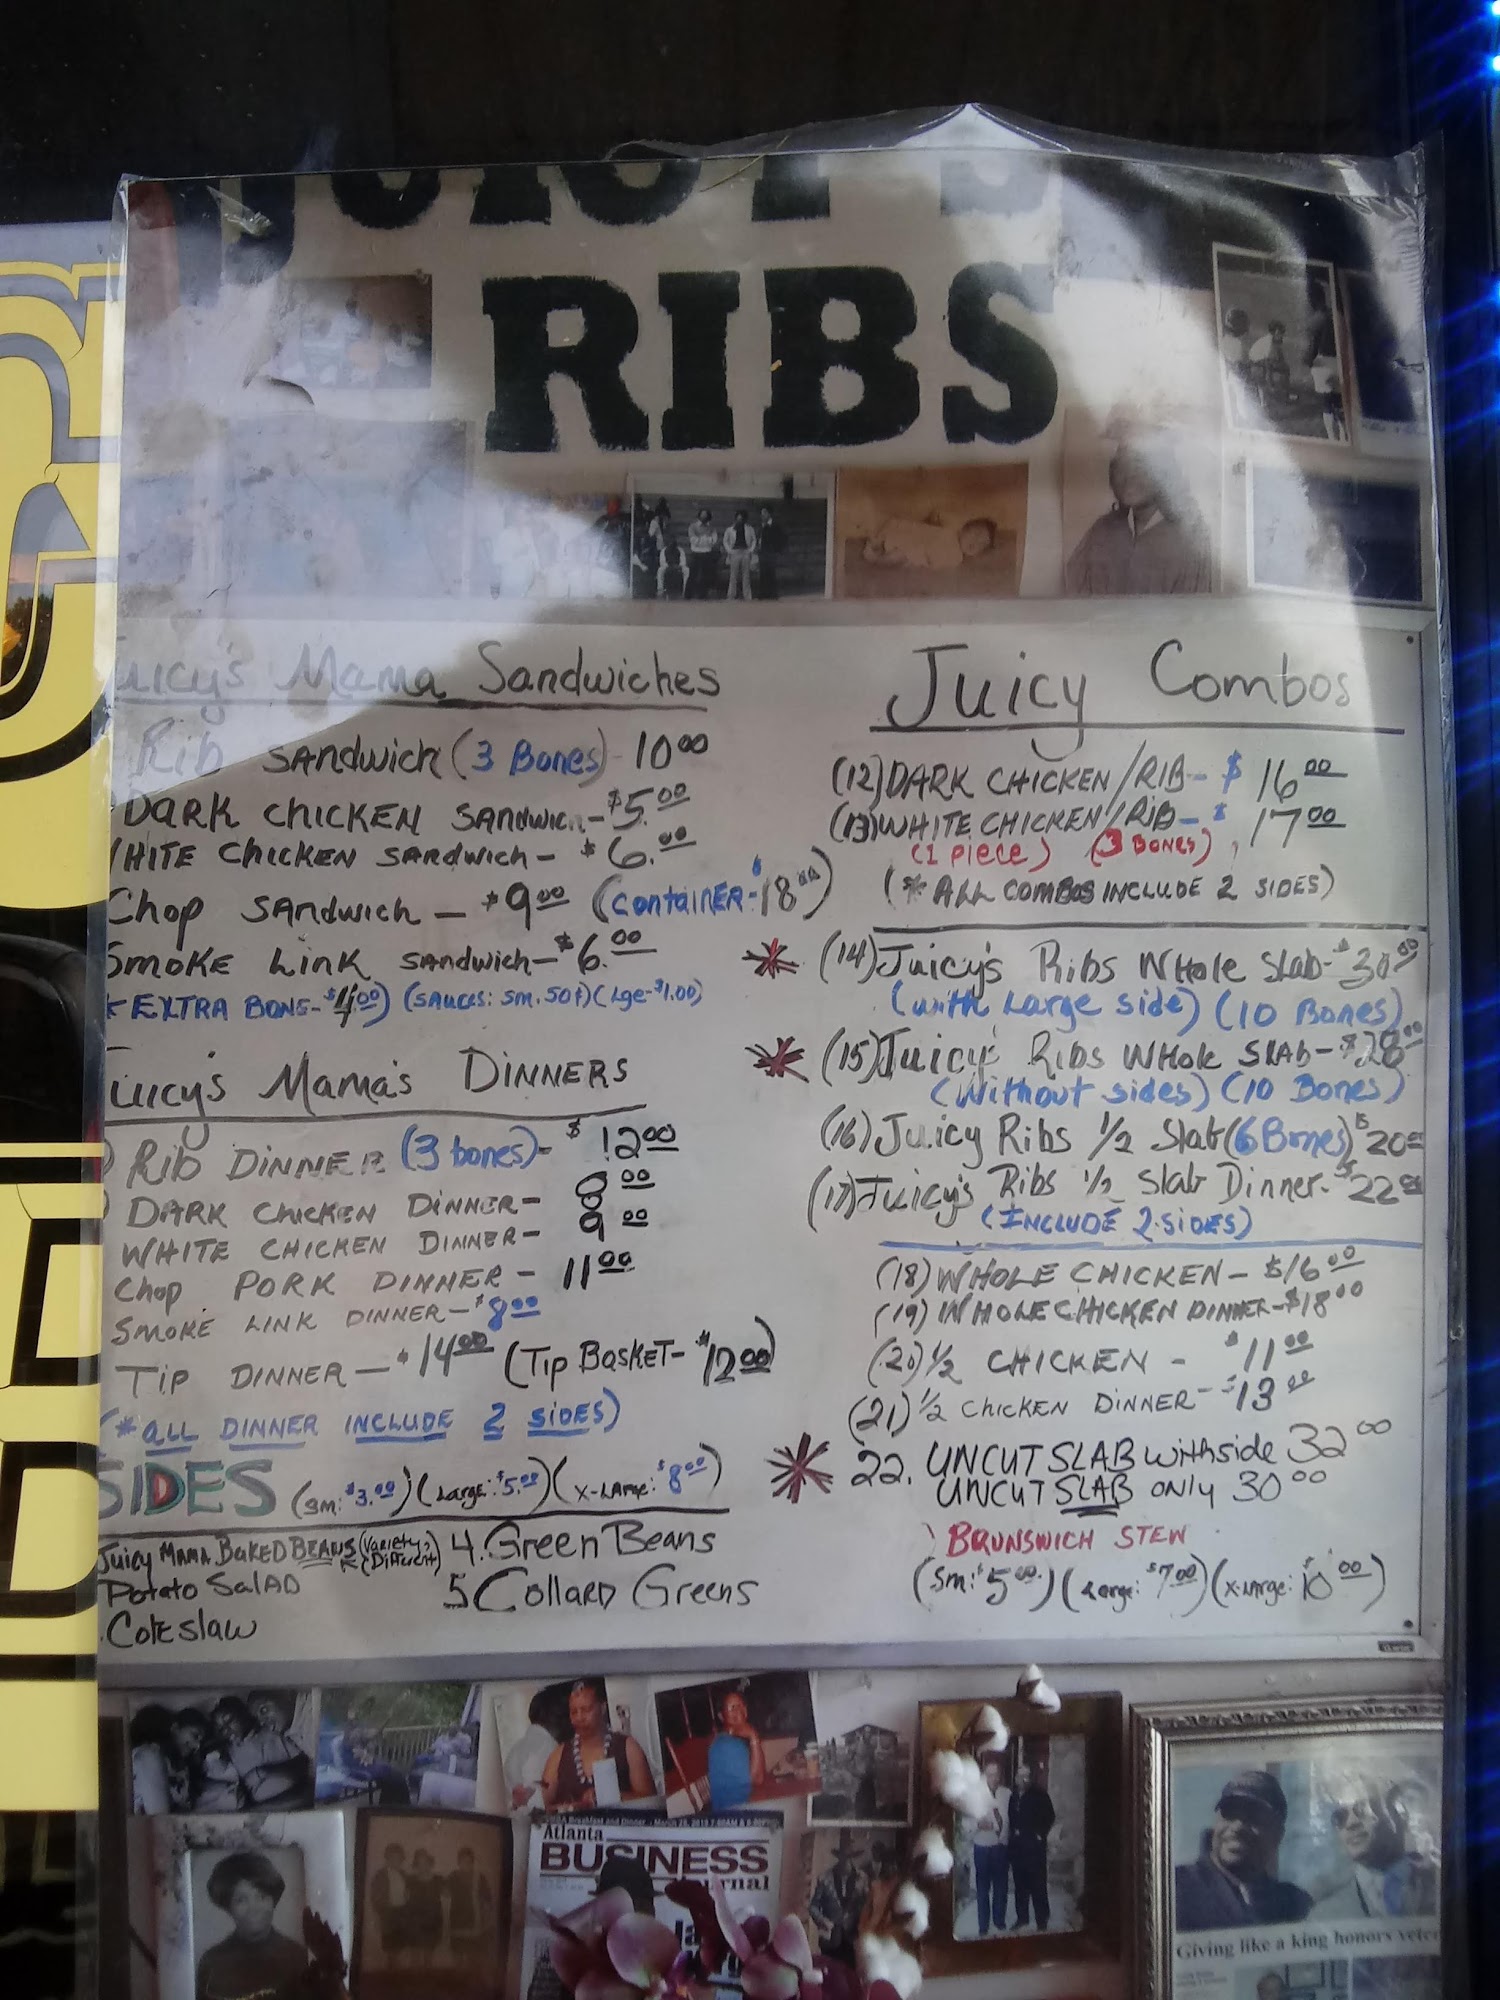 JUICY'S
RIBS
Juicy's Mama Sandwiches
Rib SANDwich (3 Bones) 10.00
DARK CHICKEN SANDWICH - $5.00
WHITE CHICKEN SANDWICH - $6.00
Chop SANDwich - $9.00 (CONTAINER - $18.00)
SMOKE LINK SANDWICH - $6.00
* EXTRA BONE - $4.00) (SAUCES: Sm. 50¢) (Lge - $1.00)
Juicy's Mama's DINNERS
Rib DINNER (3 bones) - $12.00
DARK CHICKEN DINNER - 8.00
WHITE CHICKEN DINNER - 9.00
Chop PORK DINNER - 11.00
SMOKE LINK DINNER - $8.00
TIP DINNER - $14.00 (TIP BASKET - $12.00)
(* ALL DINNER INCLUDE 2 SIDES)
SIDES (Sm: $3.00) (Large: $5.00) (X-LARge: $8.00)
Juicy MAMA BAKED BEANS (Variety, Different)
Potato SalAD
Coleslaw
4. Green Beans
5 Collard Greens
Juicy Combos
(12) DARK CHICKEN/RIB - $16.00
(13) WHITE CHICKEN/RIB - $17.00
(1 Piece) (3 BONES)
(* ALL COMBOS INCLUDE 2 SIDES)
* (14) Juicy's Ribs Whole Slab - $30.00
(with Large side) (10 Bones)
* (15) Juicy's Ribs Whole SLAB - $28.00
(Without sides) (10 Bones)
(16) Juicy Ribs 1/2 Slab (6 Bones) $20.00
(17) Juicy's Ribs 1/2 Slab Dinner - $22.00
(INCLUDE 2 SIDES)
(18) WHOLE CHICKEN - $16.00
(19) WHOLE CHICKEN DINNER - $18.00
(20) 1/2 CHICKEN - $11.00
(21) 1/2 CHICKEN DINNER - $13.00
* 22. UNCUT SLAB with side 32.00
UNCUT SLAB only 30.00
BRUNSWICH STEW
(Sm: $5.00) (Large: $7.00) (X-LARge: $10.00)
Atlanta
BUSINESS
Journal
Giving like a king honors veter